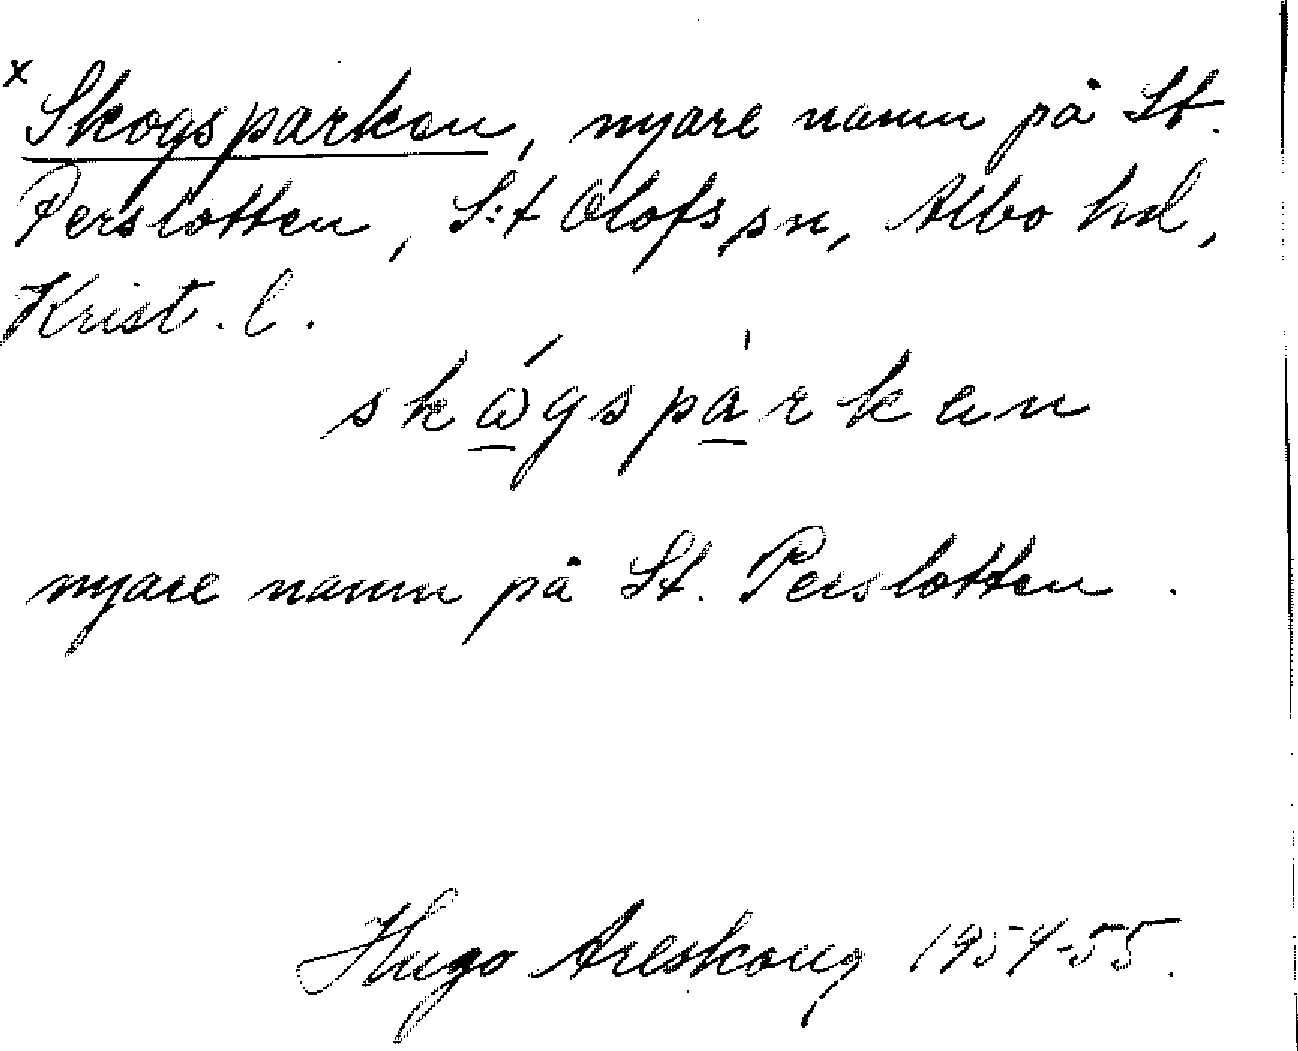 x Skogsparken, nyare namn på St.
Perslotten, S:t Olofs sn, Albo hd,
Krist. l.
skǻgspàrkan
nyare namn på St. Perslotten.
Hugo Areskoug 1954-55.